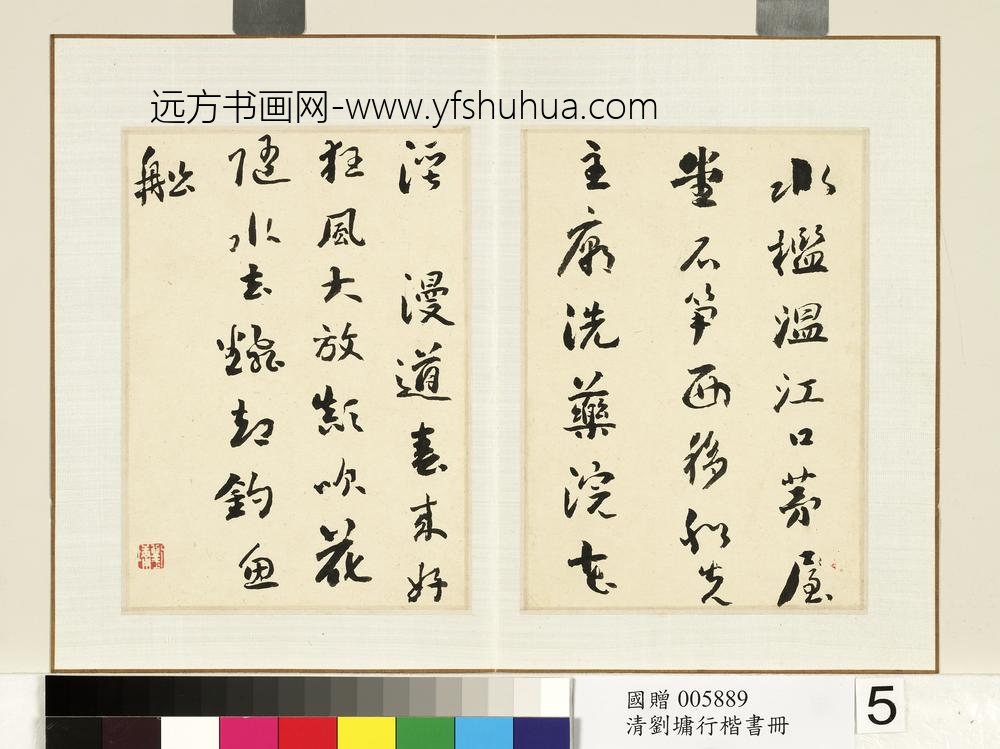 远方书画网-www.yfshuhua.com
水檻溫江口茅屋
堂石筍西移船先
主廟洗藥浣花
溪 漫道春來好
狂風大放顛吹花
隨水去飜却釣魚
舩
國贈 005889
清劉墉行楷書冊
5